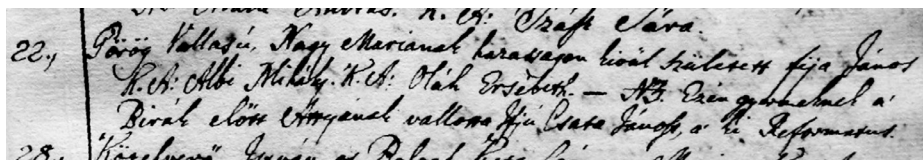 K. A: Szász Sára.
22., Görög Vallasú Nagy Marianak hazassagon kivül Született fija János
K. A: Albi Mihály. K. A: Oláh Ersébeth. — NB. Ezen gyermeknek a
Birák előtt Attyának vallotta Ifjú Csata Jánost, a ki Reformatus.
28.,